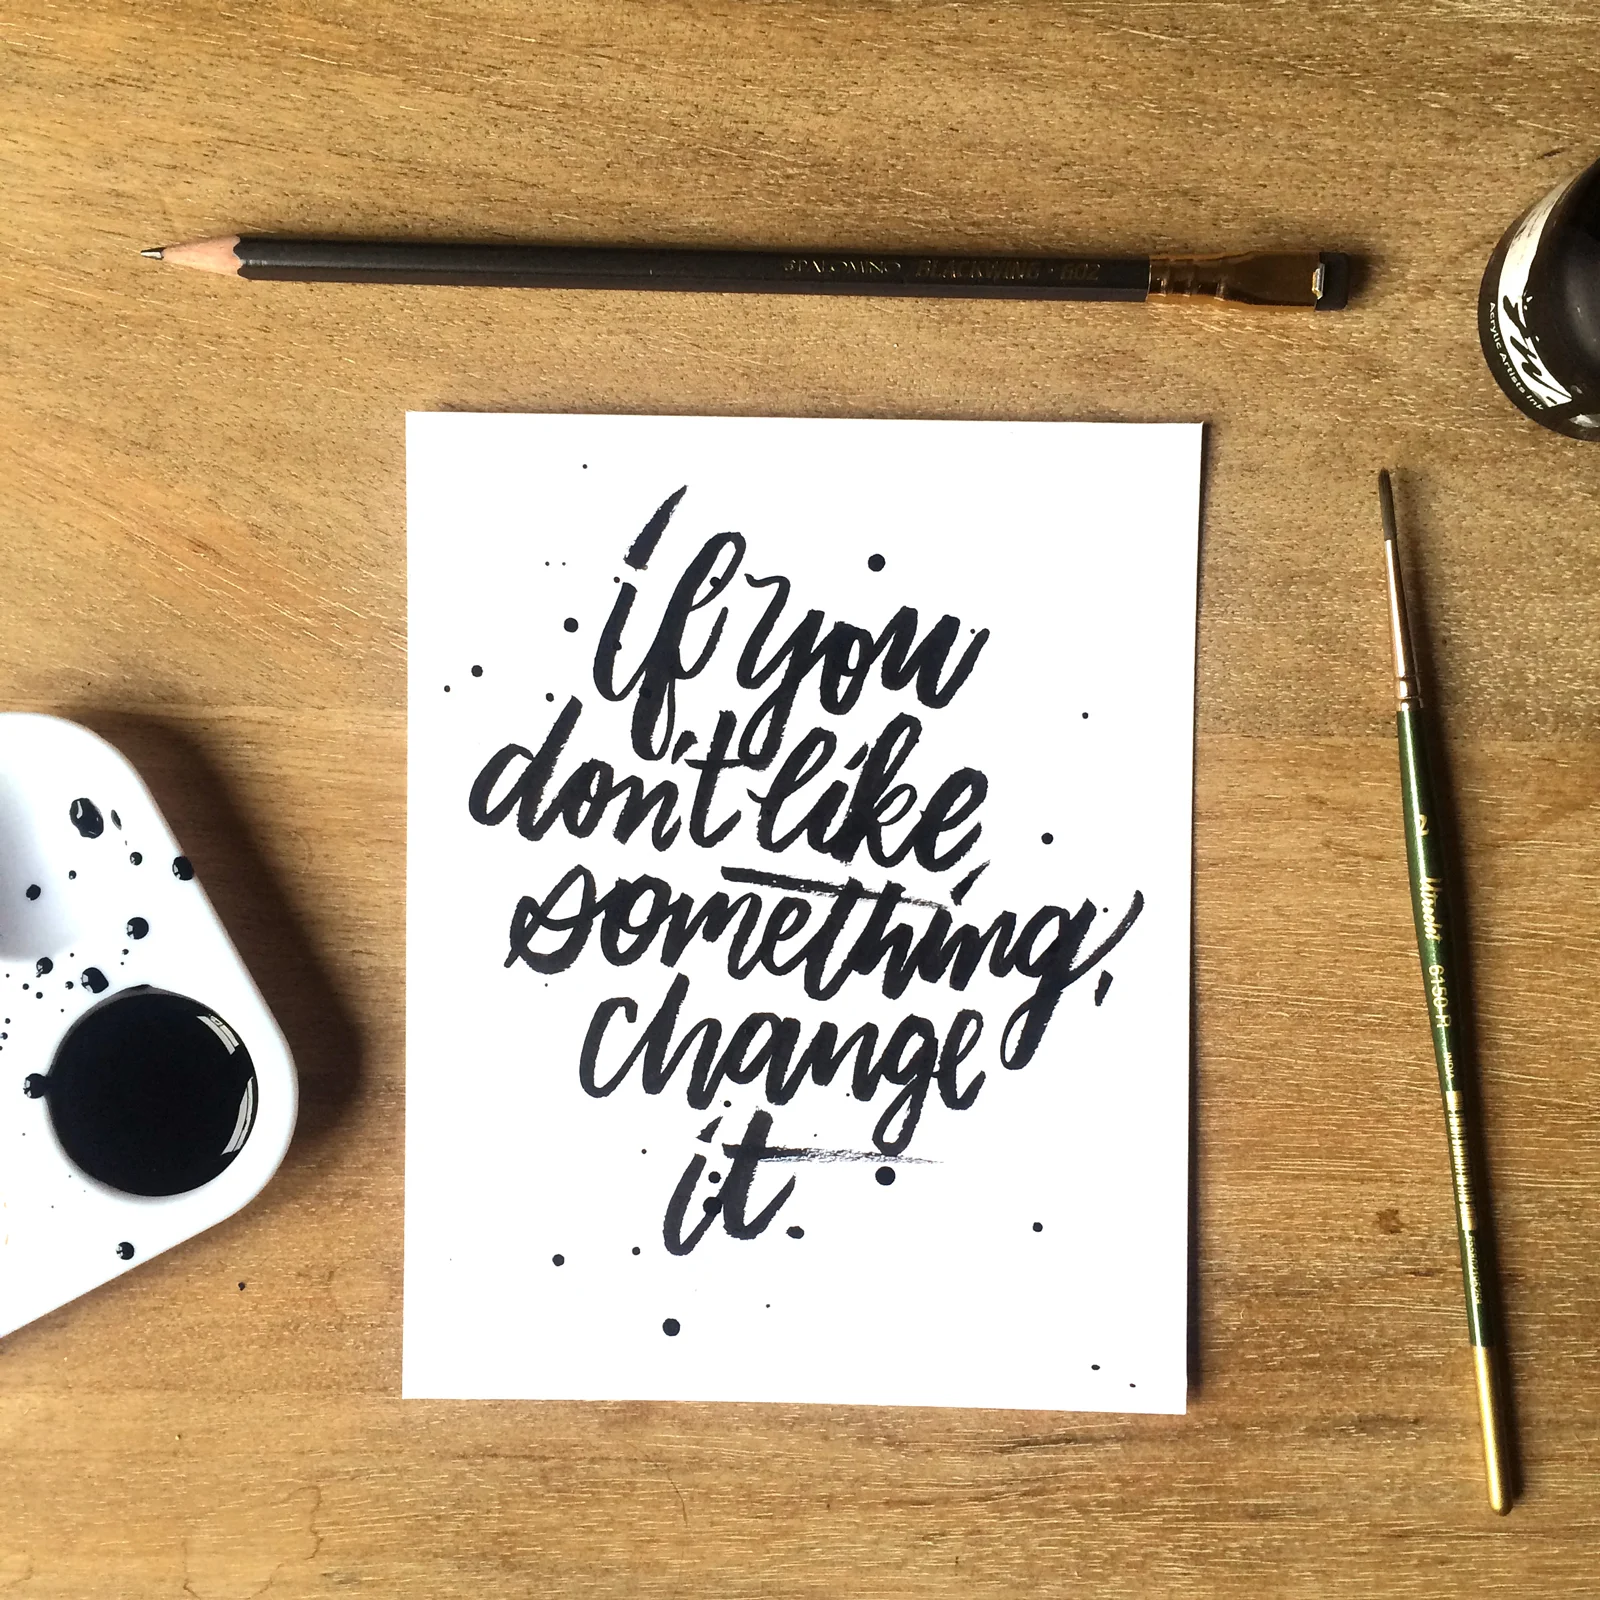 PALOMINO BLACKWING · 602
Ink
Acrylic Artists Ink
if you
don't like
something,
change
it.
2 6150-R INDIA